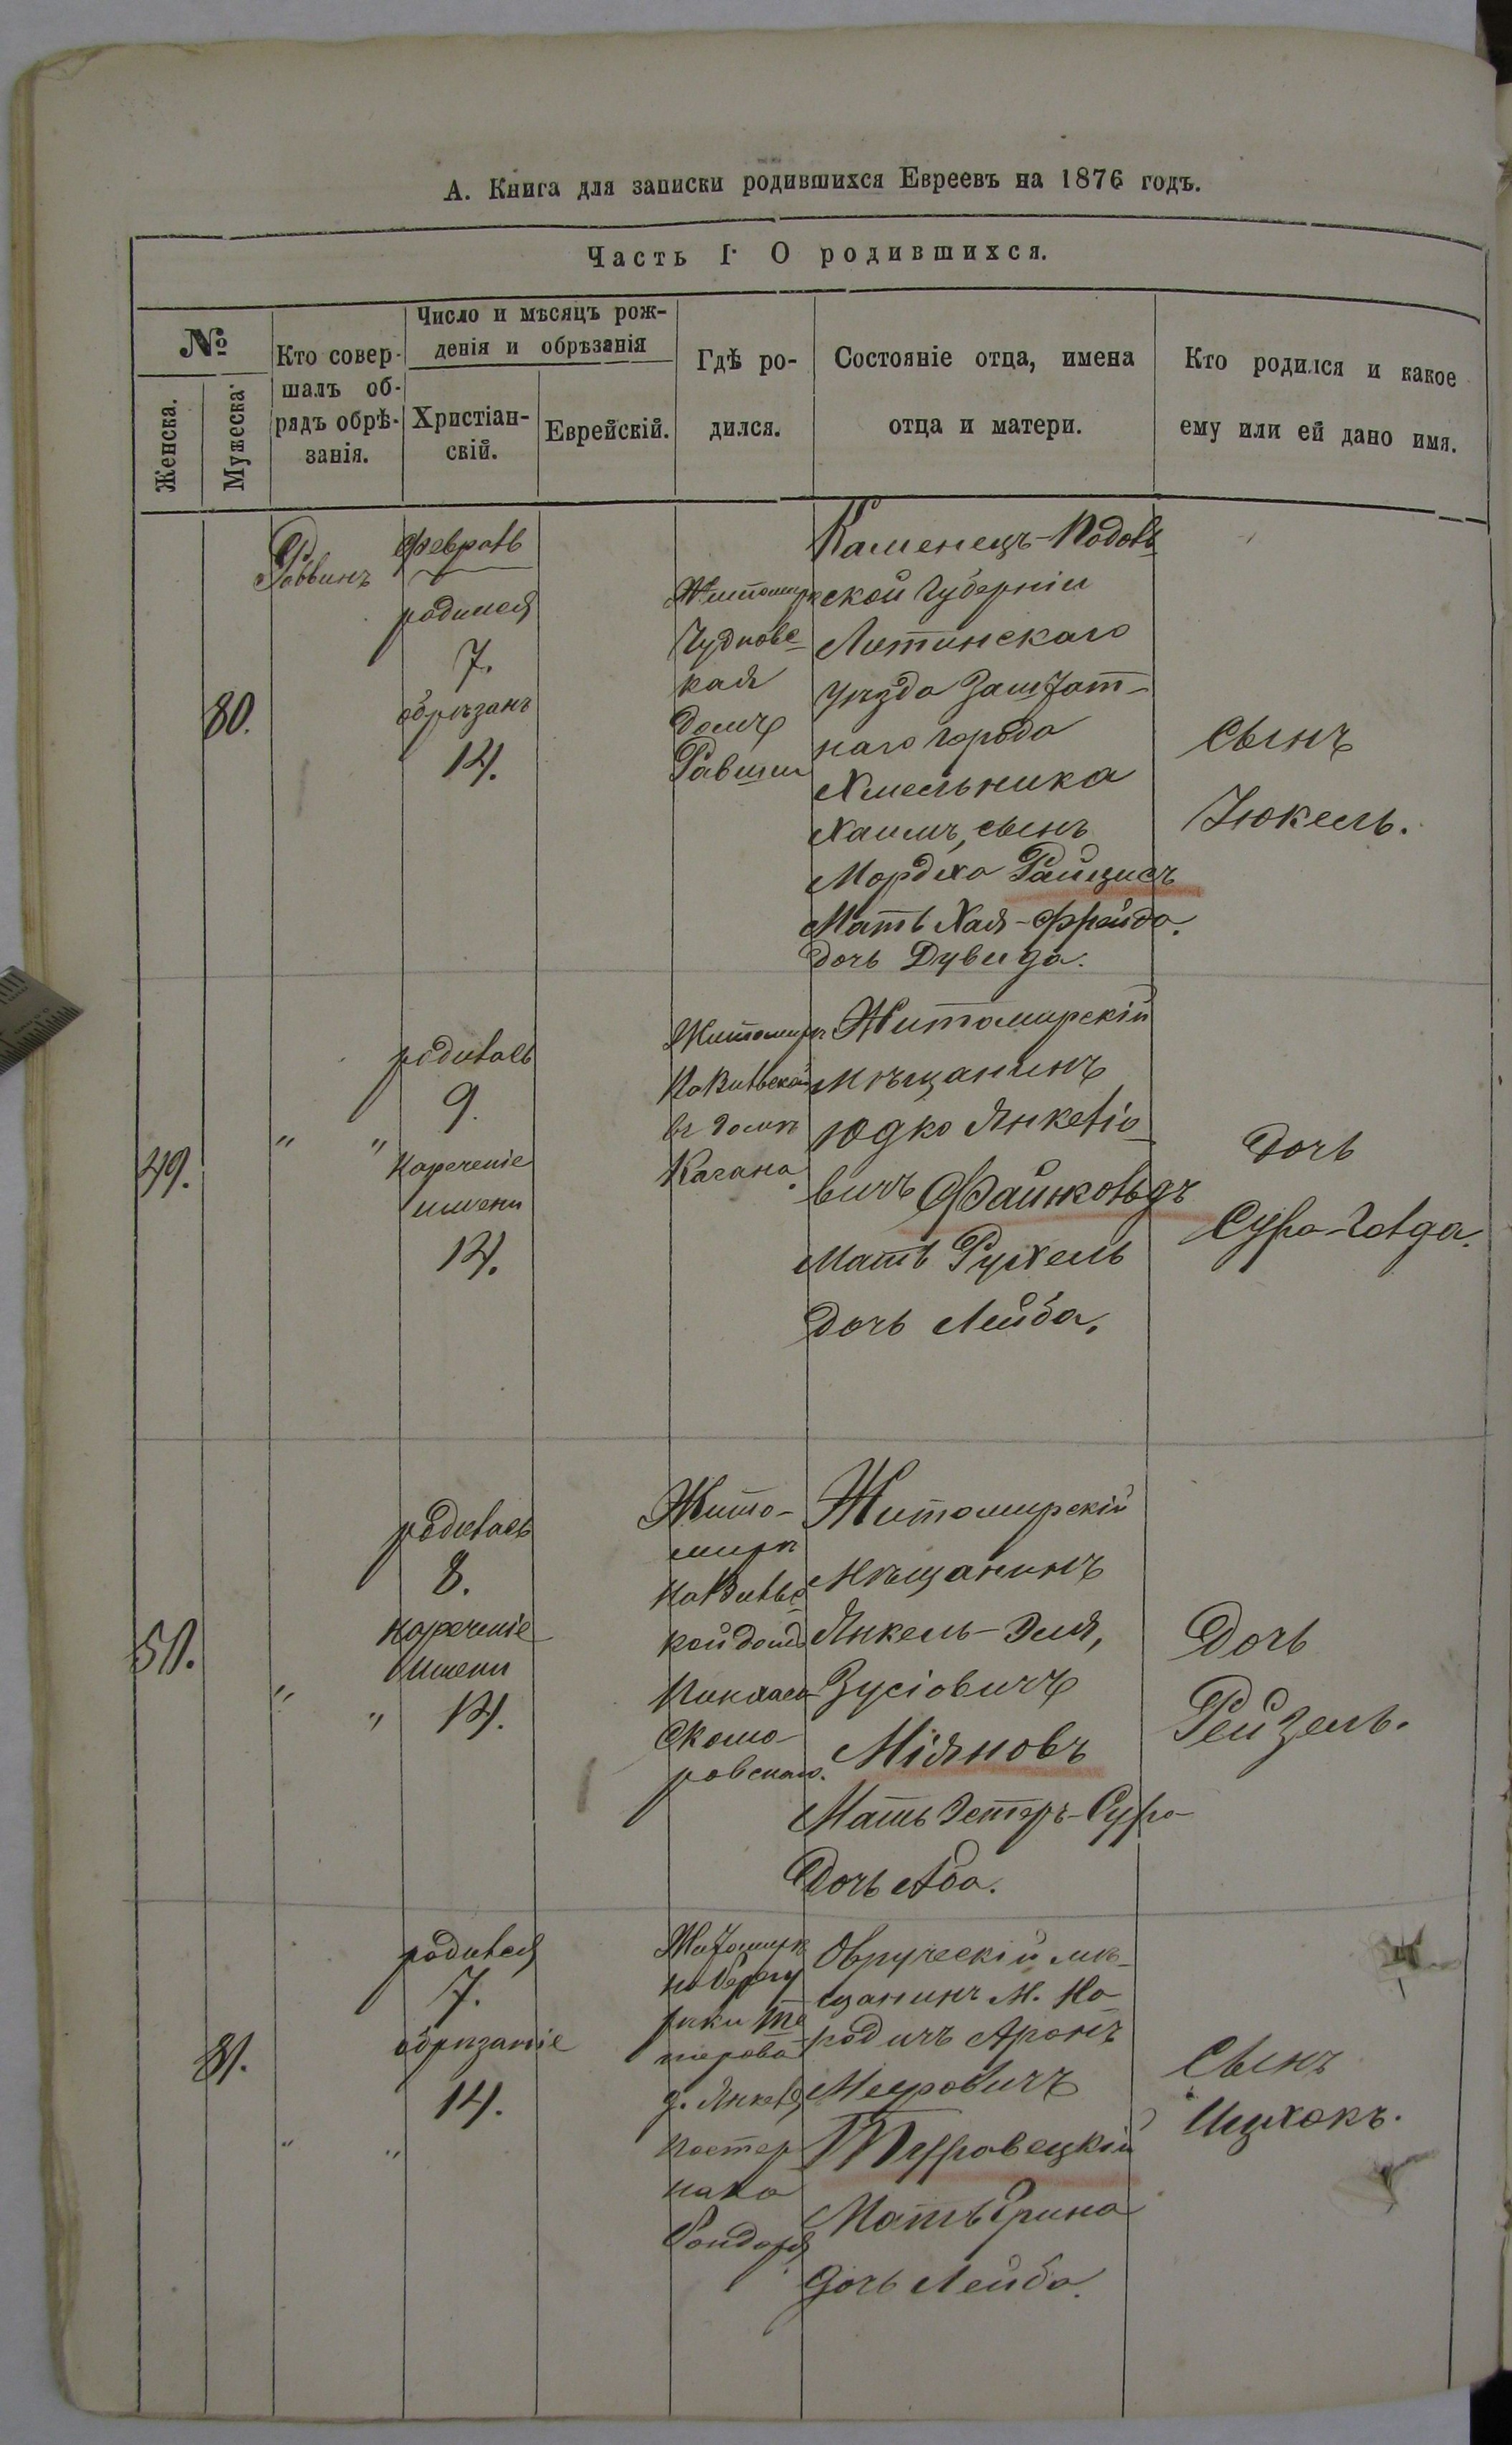 А. Книга для записки родившихся Евреевъ на 1876 годъ.
Часть I. О родившихся.
№
Женска.
Мужеска.
Кто совер-
шалъ об-
рядъ обрѣ-
занія.
Число и мѣсяцъ рож-
денія и обрѣзанія
Христіан-
скій.
Еврейскій.
Гдѣ ро-
дился.
Состояніе отца, имена
отца и матери.
Кто родился и какое
ему или ей дано имя.
80.
Раввинъ
февраль
родился
7.
обрѣзанъ
14.
Житомиръ
Чудновс-
кая
домъ
Каменецъ-Подоль
ской Губерніи
Литинскаго
уѣзда Заштат-
наго города
Хмельника
Хаимъ, сынъ
Мордко Райцисъ
Мать Хая-Фрейда.
дочь Дувида.
Сынъ
Іюкель.
49.
" "
родилась
9.
нареченіе
имени
14.
Житомиръ
въ домѣ
Кагана.
Житомирскій
мѣщанинъ
Юдко Янкеліо-
вичъ Файнкольдъ
Мать Рухель
дочь Лейба.
Дочь
Сура-Голда.
50.
" "
родилась
8.
нареченіе
имени
14.
Жито-
миръ
кой домъ
Пинхаса
Скомо-
ровскаго.
Житомирскій
мѣщанинъ
Янкель-Эля,
Зусіовичъ
Міяновъ
Мать Эстеръ-Сура
Дочь Аба.
Дочь
Рейзель.
81.
" "
родился
7.
обрѣзаніе
14.
Житомиръ
по берегу
рѣки Те
терева
д. Янкеля
Пастер
нака
Бондаря.
Овручскій мѣ-
щанинъ М. На-
родичъ Аронъ
Мееровичъ
Туровецкій
Мать Брина
дочь Лейба.
Сынъ
Ицхокъ.